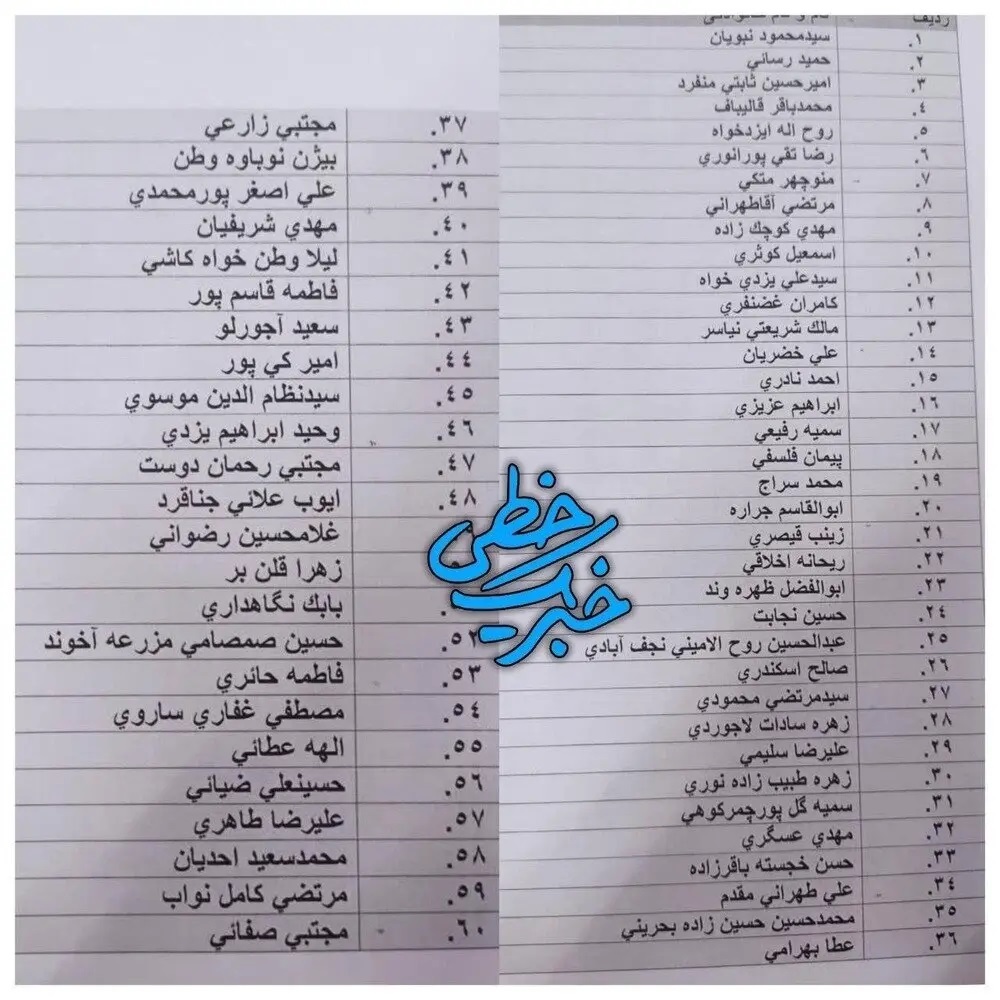 ردیف نام و نام خانوادگی
۱. سيدمحمود نبويان
۲. حميد رسائي
۳. اميرحسين ثابتي منفرد
۴. محمدباقر قاليباف
۵. روح اله ايزدخواه
۶. رضا تقي پورانوري
۷. منوچهر متكي
۸. مرتضي آقاطهراني
۹. مهدي كوچك زاده
۱۰. اسمعيل كوثري
۱۱. سيدعلي يزدي خواه
۱۲. كامران غضنفري
۱۳. مالك شريعتي نياسر
۱٤. علي خضريان
۱٥. احمد نادري
۱٦. ابراهيم عزيزي
۱۷. سميه رفيعي
۱۸. پيمان فلسفي
۱۹. محمد سراج
۲۰. ابوالقاسم جراره
۲۱. زينب قيصري
۲۲. ريحانه اخلاقي
۲۳. ابوالفضل ظهره وند
۲٤. حسين نجابت
۲٥. عبدالحسين روح الاميني نجف آبادي
۲٦. صالح اسكندري
۲۷. سيدمرتضي محمودي
۲۸. زهره سادات لاجوردي
۲۹. عليرضا سليمي
۳۰. زهره طبيب زاده نوري
۳۱. سميه گل پورچمركوهي
۳۲. مهدي عسگري
۳۳. حسن خجسته باقرزاده
۳٤. علي طهراني مقدم
۳٥. محمدحسين حسين زاده بحريني
۳٦. عطا بهرامي
۳۷. مجتبي زارعي
۳۸. بيژن نوباوه وطن
۳۹. علي اصغر پورمحمدي
٤۰. مهدي شريفيان
٤۱. ليلا وطن خواه كاشي
٤۲. فاطمه قاسم پور
٤۳. سعيد آجورلو
٤٤. امير كي پور
٤٥. سيدنظام الدين موسوي
٤٦. وحيد ابراهيم يزدي
٤۷. مجتبي رحمان دوست
٤۸. ايوب علائي جناقرد
غلامحسين رضواني
زهرا قلن بر
بابك نگاهداري
٥۲. حسين صمصامي مزرعه آخوند
٥۳. فاطمه حائري
٥٤. مصطفي غفاري ساروي
٥٥. الهه عطائي
٥٦. حسينعلي ضيائي
٥۷. عليرضا طاهري
٥۸. محمدسعيد احديان
٥۹. مرتضي كامل نواب
٦۰. مجتبي صفائي
خبر یک خطی